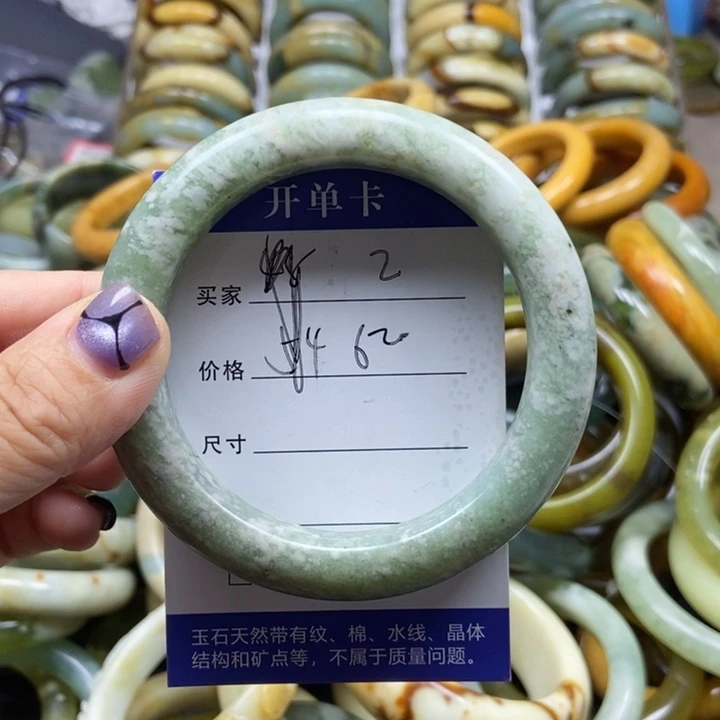 开单卡
买家 2
价格 62
尺寸
玉石天然带有纹、棉、水线、晶体
结构和矿点等，不属于质量问题。